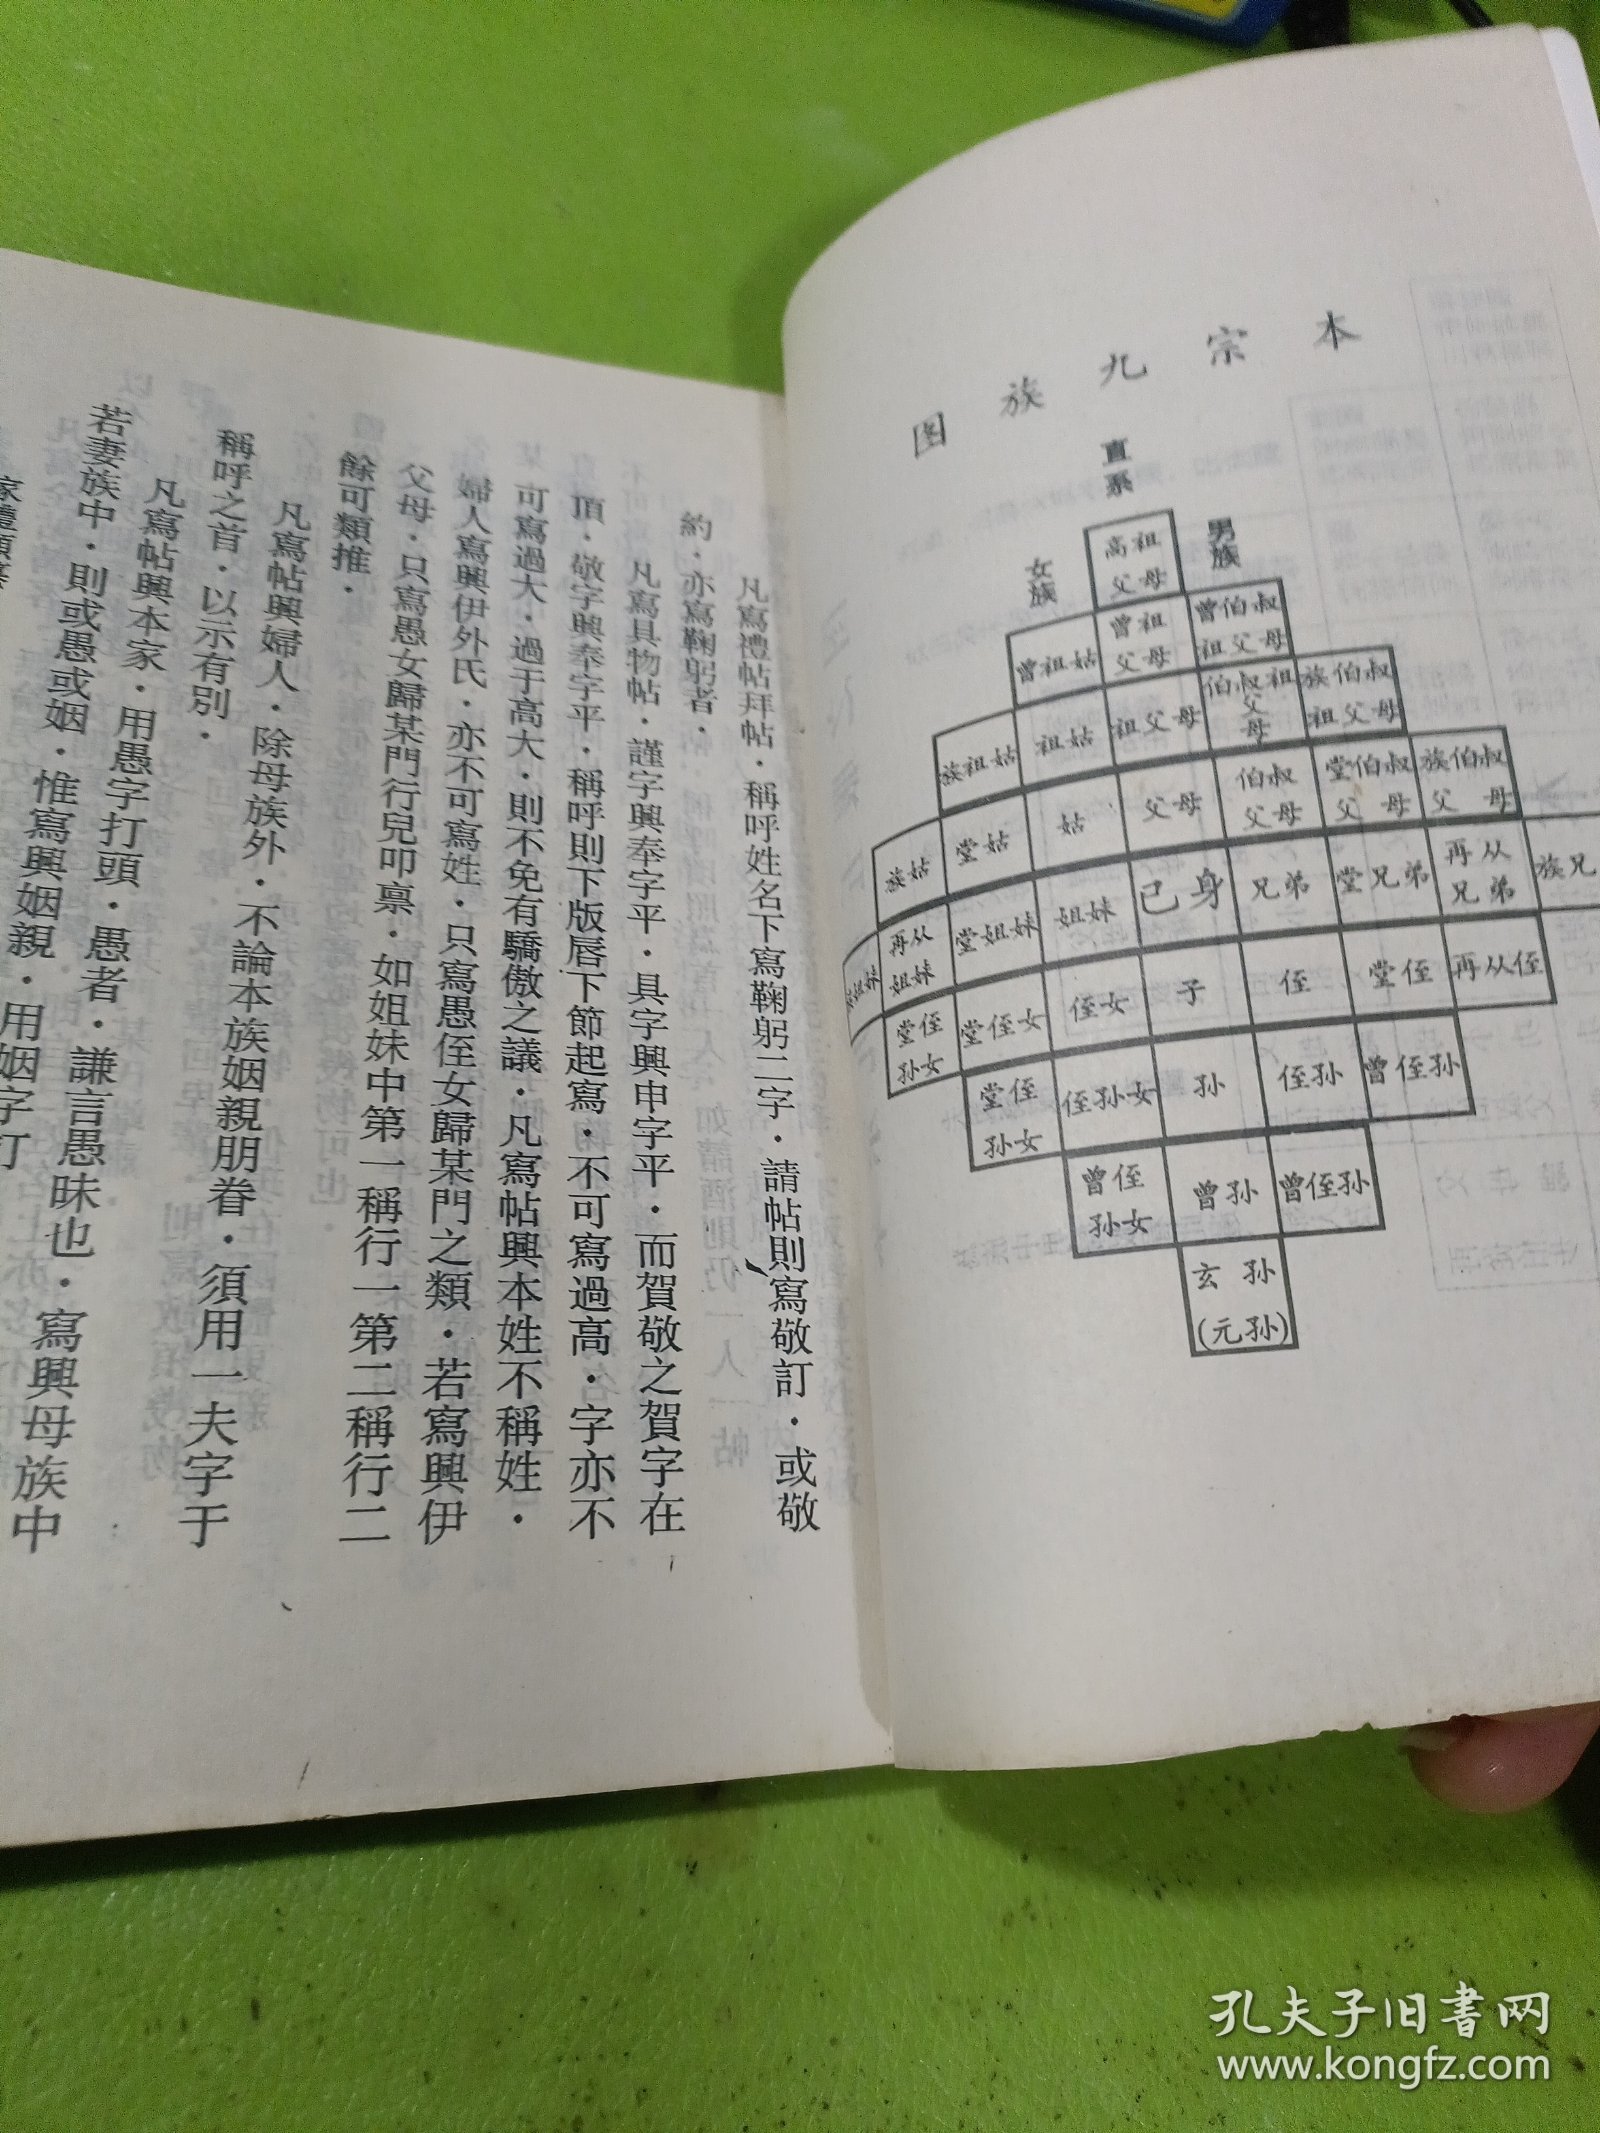 本宗九族图
直系
女族
男族
高祖父母
曾祖姑 曾祖父母 曾伯叔祖父母
族祖姑 祖姑 祖父母 伯叔祖父母 族伯叔祖父母
族姑 堂姑 姑 父母 伯叔父母 堂伯叔父母 族伯叔父母
族姐妹 再从姐妹 堂姐妹 姐妹 己身 兄弟 堂兄弟 再从兄弟 族兄
堂侄孙女 堂侄女 侄女 子 侄 堂侄 再从侄
堂侄孙女 侄孙女 孙 侄孙 曾侄孙
曾侄孙女 曾孙 曾侄孙
玄孙(元孙)
凡寫禮帖拜帖·稱呼姓名下寫鞠躬二字·請帖則寫敬訂·或敬
約·亦寫鞠躬者·
凡寫具物帖·謹字興奉字平·具字興申字平·而賀敬之賀字在
頂·敬字興奉字平·稱呼則下版唇下節起寫·不可寫過高·字亦不
可寫過大·過于高大·則不免有驕傲之議·凡寫帖興本姓不稱姓·
婦人寫興伊外氏·亦不可寫姓·只寫愚侄女歸某門之類·若寫興伊
父母·只寫愚女歸某門行兒叩禀·如姐妹中第一稱行一第二稱行二
餘可類推·
凡寫帖興婦人·除母族外·不論本族姻親朋眷·須用一夫字于
稱呼之首·以示有別·
凡寫帖興本家·用愚字打頭·愚者·謙言愚昧也·寫興母族中
若妻族中·則或愚或姻·惟寫興姻親·用姻字打
孔夫子旧书网
www.kongfz.com